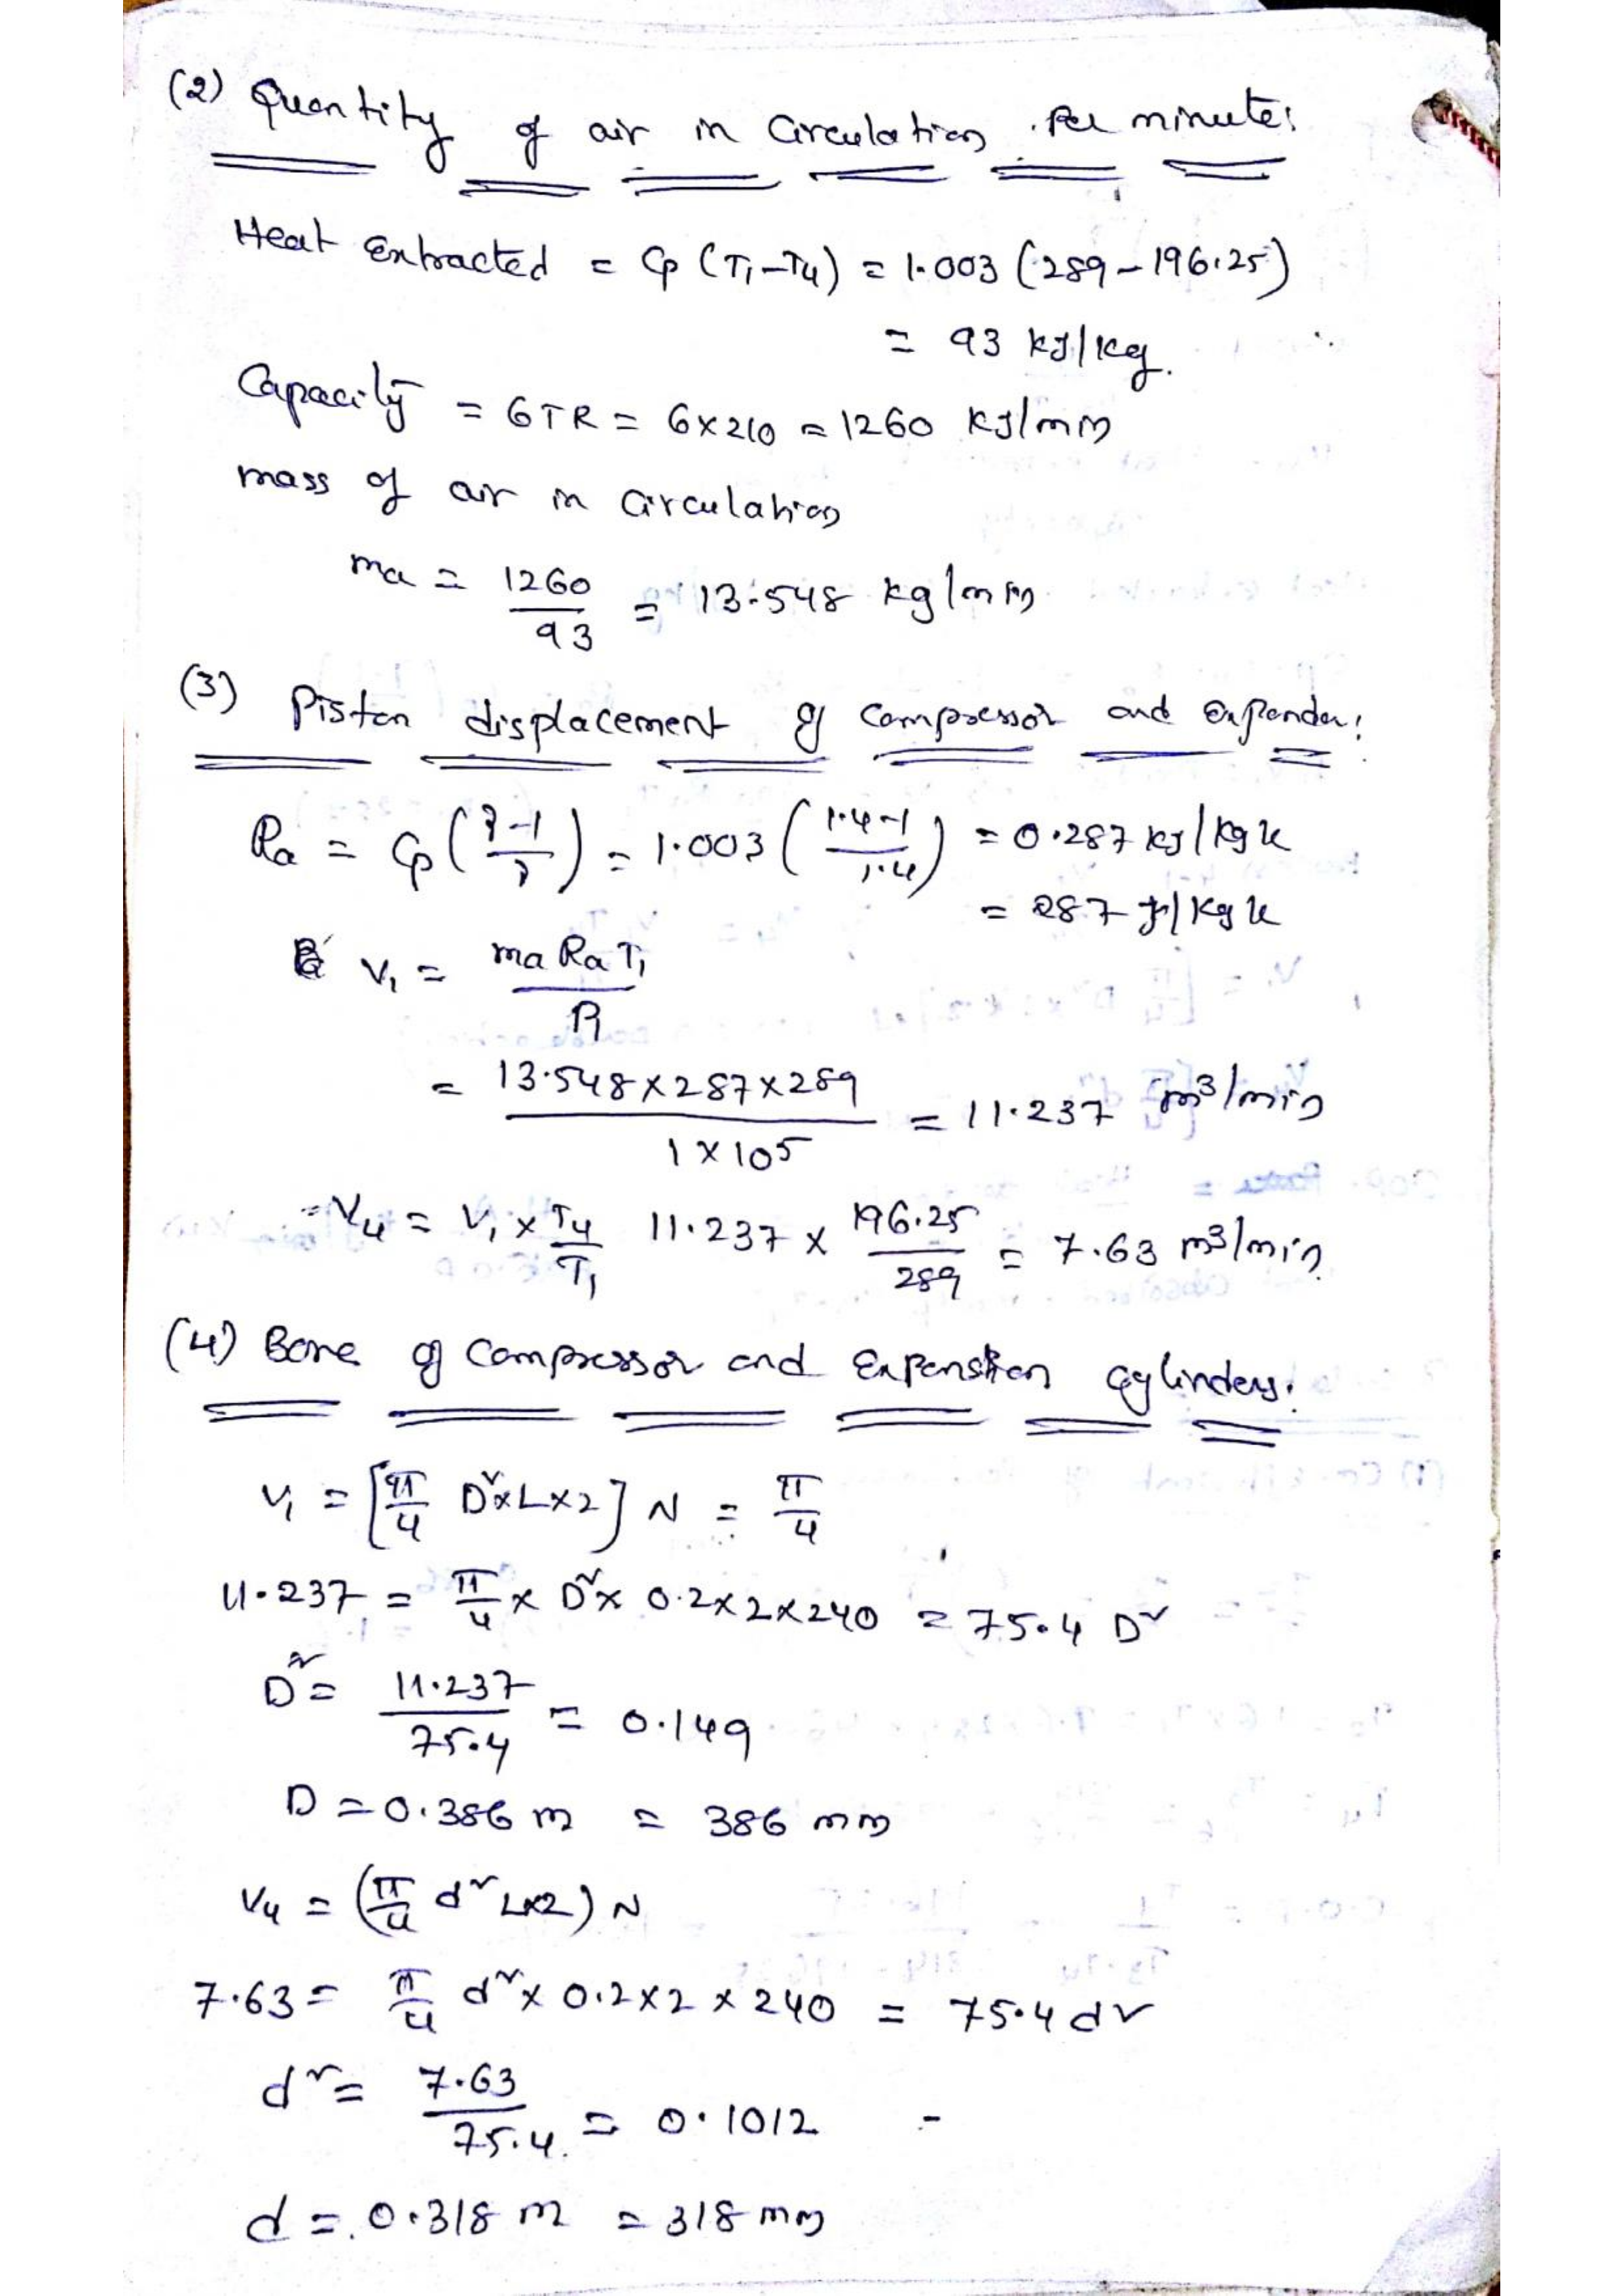 (2) Quantity of air in Circulation Per minute:
Heat Extracted = Cp (T1-T4) = 1.003 (289-196.25)
= 93 kJ/kg.
Capacity = 6TR = 6×210 = 1260 kJ/min
mass of air in Circulation
ma = 1260/93 = 13.548 kg/min
(3) Piston displacement of Compressor and Expander:
Ra = Cp (γ-1/γ) = 1.003 (1.4-1/1.4) = 0.287 kJ/kg k
= 287 J/kg k
V1 = ma Ra T1/P1
= 13.548×287×289/1×10^5 = 11.237 m³/min
V4 = V1 × T4/T1 11.237 × 196.25/289 = 7.63 m³/min
(4) Bore of Compressor and Expansion Cylinders:
V1 = [π/4 D²×L×2] N = π/4
11.237 = π/4 × D² × 0.2×2×240 = 75.4 D²
D² = 11.237/75.4 = 0.149
D = 0.386 m = 386 mm
V4 = (π/4 d² L×2) N
7.63 = π/4 d² × 0.2×2×240 = 75.4 d²
d² = 7.63/75.4. = 0.1012 -
d = 0.318 m = 318 mm